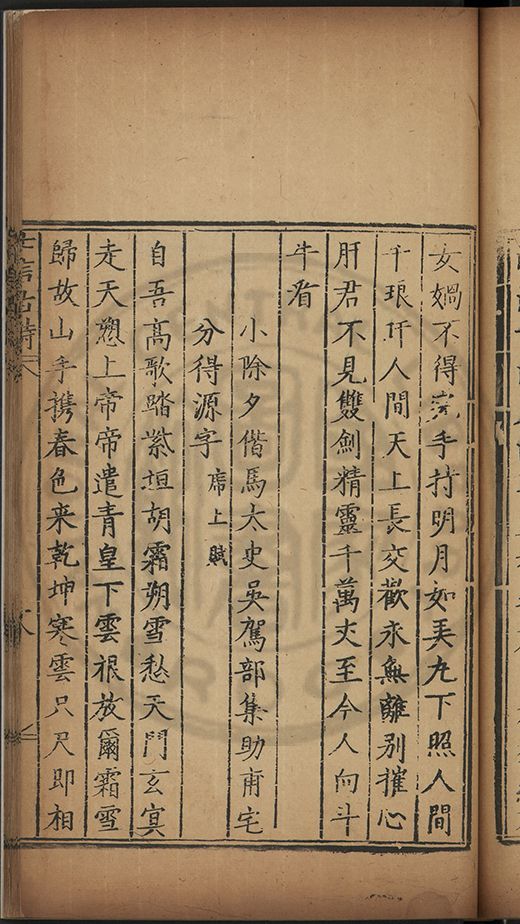 女媧不得完手持明月如美九下照人間
千琅玕人間天上長交歡永無離别摧心
肝君不見雙劍精靈千萬丈至今人向斗
牛看
小除夕偕馬太史吳駕部集助甫宅
分得源字 席上賦
自吾高歌踏紫垣胡霜朔雪愁天門玄冥
走天愬上帝帝遣青皇下雲根放爾霜雪
歸故山手携春色来乾坤寒雲只尺即相
七言古詩